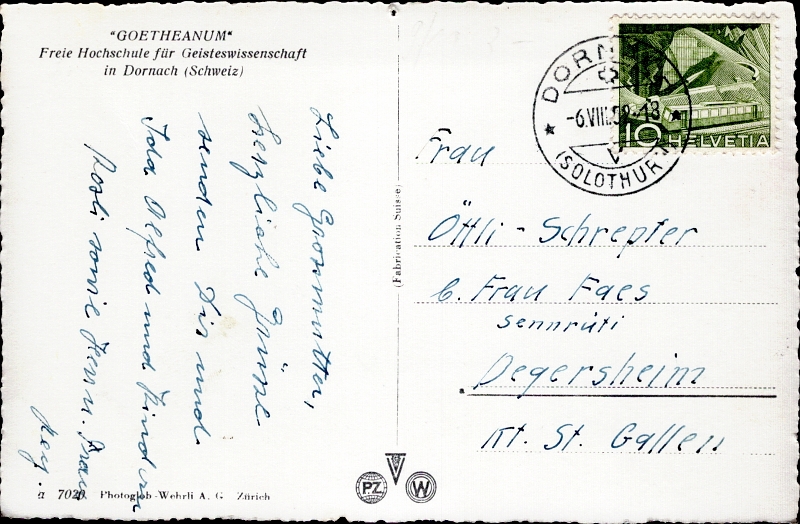 "GOETHEANUM"
Freie Hochschule für Geisteswissenschaft
in Dornach (Schweiz)
Liebe Grossmutter,
herzliche Grüsse
senden Dir und
Ida Alfred und Kindern
Rosli sowie Herr u. Frau
(Fabrication Suisse)
DORNACH
-6.VIII.52-18
(SOLOTHURN)
10 HELVETIA
Frau
Öttli-Schrepfer
b. Frau Faes
Sennrüti
Degersheim
Kt. St. Gallen
PZ W
a 7020 Photoglob-Wehrli A. G. Zürich